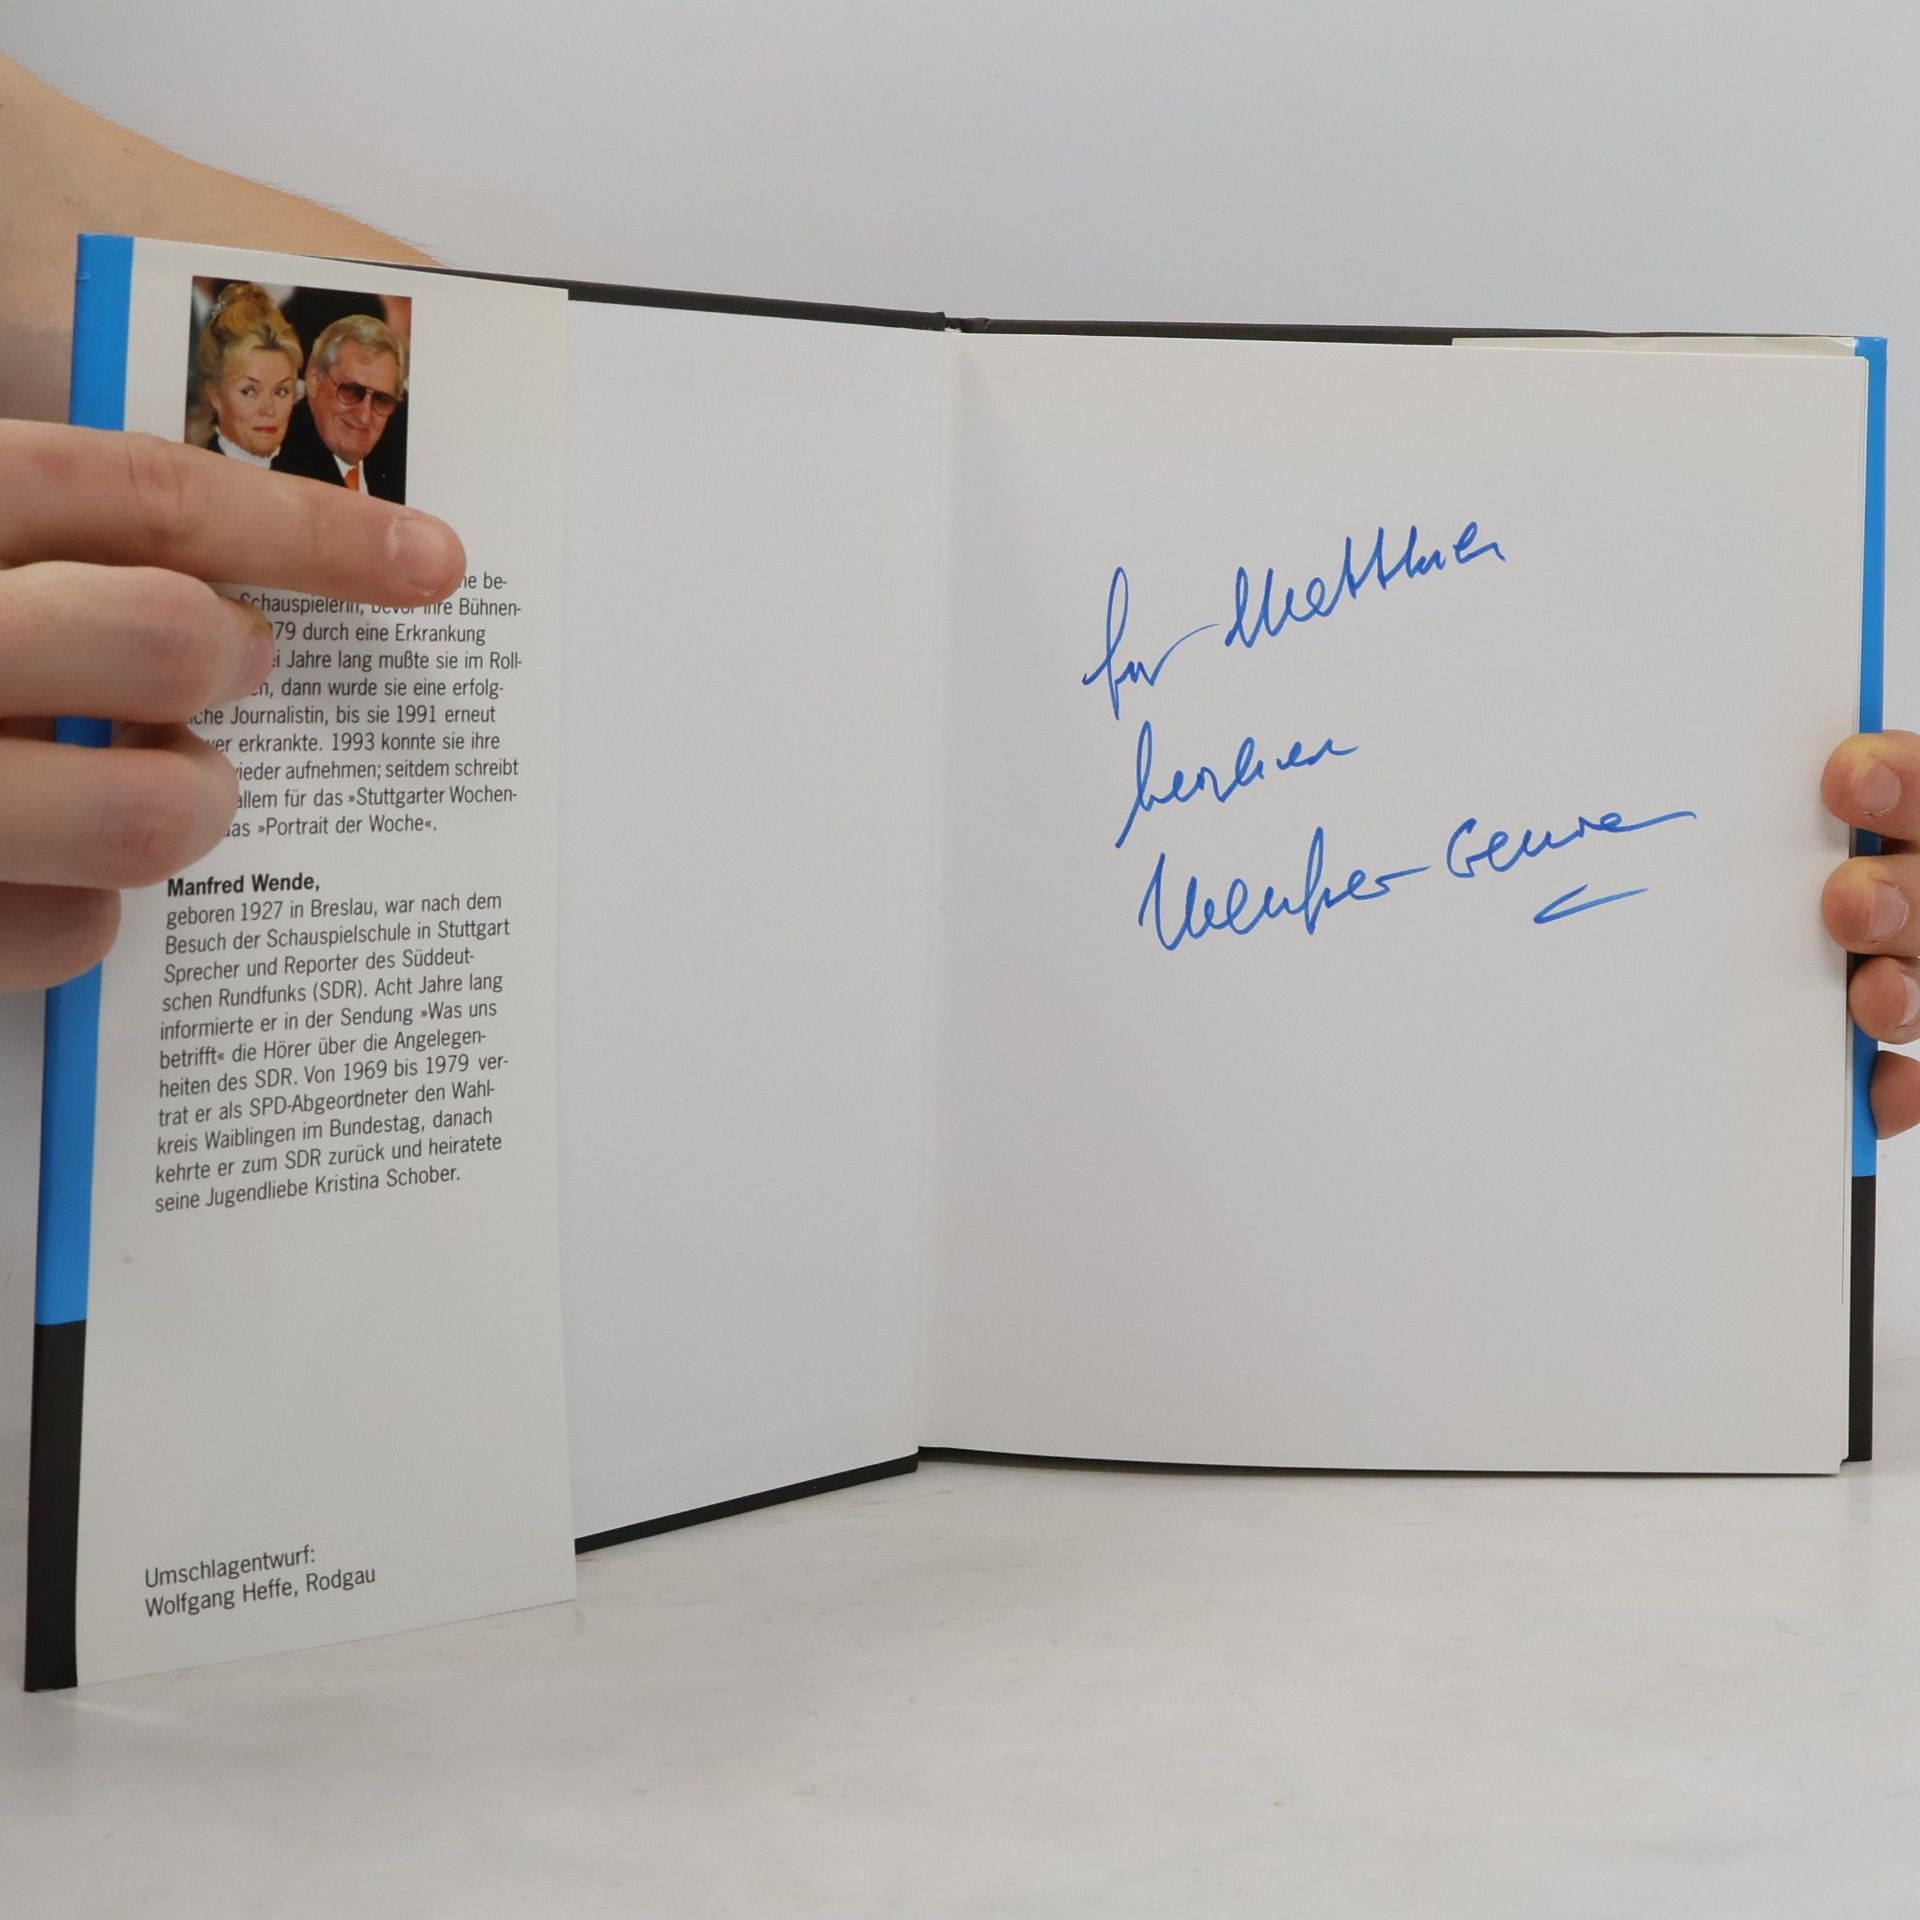 ne be-
Schauspielerin, bevor ihre Bühnen-
79 durch eine Erkrankung
ei Jahre lang mußte sie im Roll-
en, dann wurde sie eine erfolg-
iche Journalistin, bis sie 1991 erneut
wer erkrankte. 1993 konnte sie ihre
wieder aufnehmen; seitdem schreibt
allem für das »Stuttgarter Wochen-
das »Portrait der Woche«.
Manfred Wende,
geboren 1927 in Breslau, war nach dem
Besuch der Schauspielschule in Stuttgart
Sprecher und Reporter des Süddeut-
schen Rundfunks (SDR). Acht Jahre lang
informierte er in der Sendung »Was uns
betrifft« die Hörer über die Angelegen-
heiten des SDR. Von 1969 bis 1979 ver-
trat er als SPD-Abgeordneter den Wahl-
kreis Waiblingen im Bundestag, danach
kehrte er zum SDR zurück und heiratete
seine Jugendliebe Kristina Schober.
Umschlagentwurf:
Wolfgang Heffe, Rodgau
für